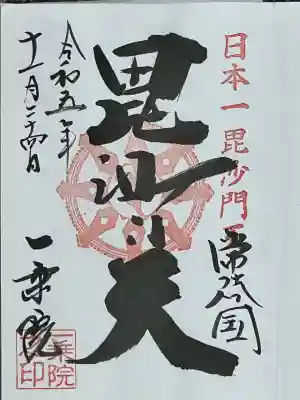 日本一毘沙門天
常陸国
毘沙門天
令和五年
十一月二十四日
一乗院
一乗院印